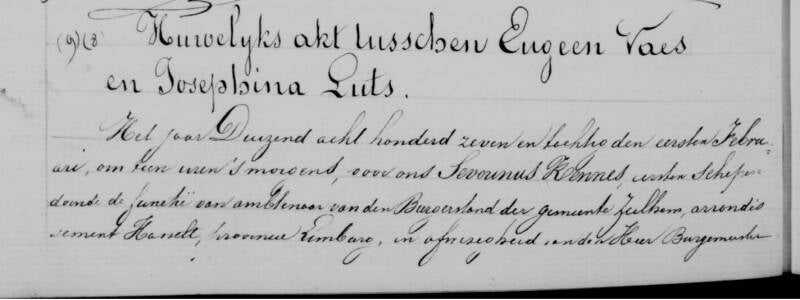 (9)(8) Huwelyks akt tusschen Eugeen Vaes
en Josephina Luts.
Het jaar Duizend acht honderd zeven en tachtig den eersten Febru-
ari, om tien uren 's morgens, voor ons Severinus Kennes, eersten Schepen
doende de functie van ambtenaar van den Burgerstand der gemeente Zeelhem, arrondis
sement Hasselt, provincie Limburg, in afwezigheid van den Heer Burgemeester